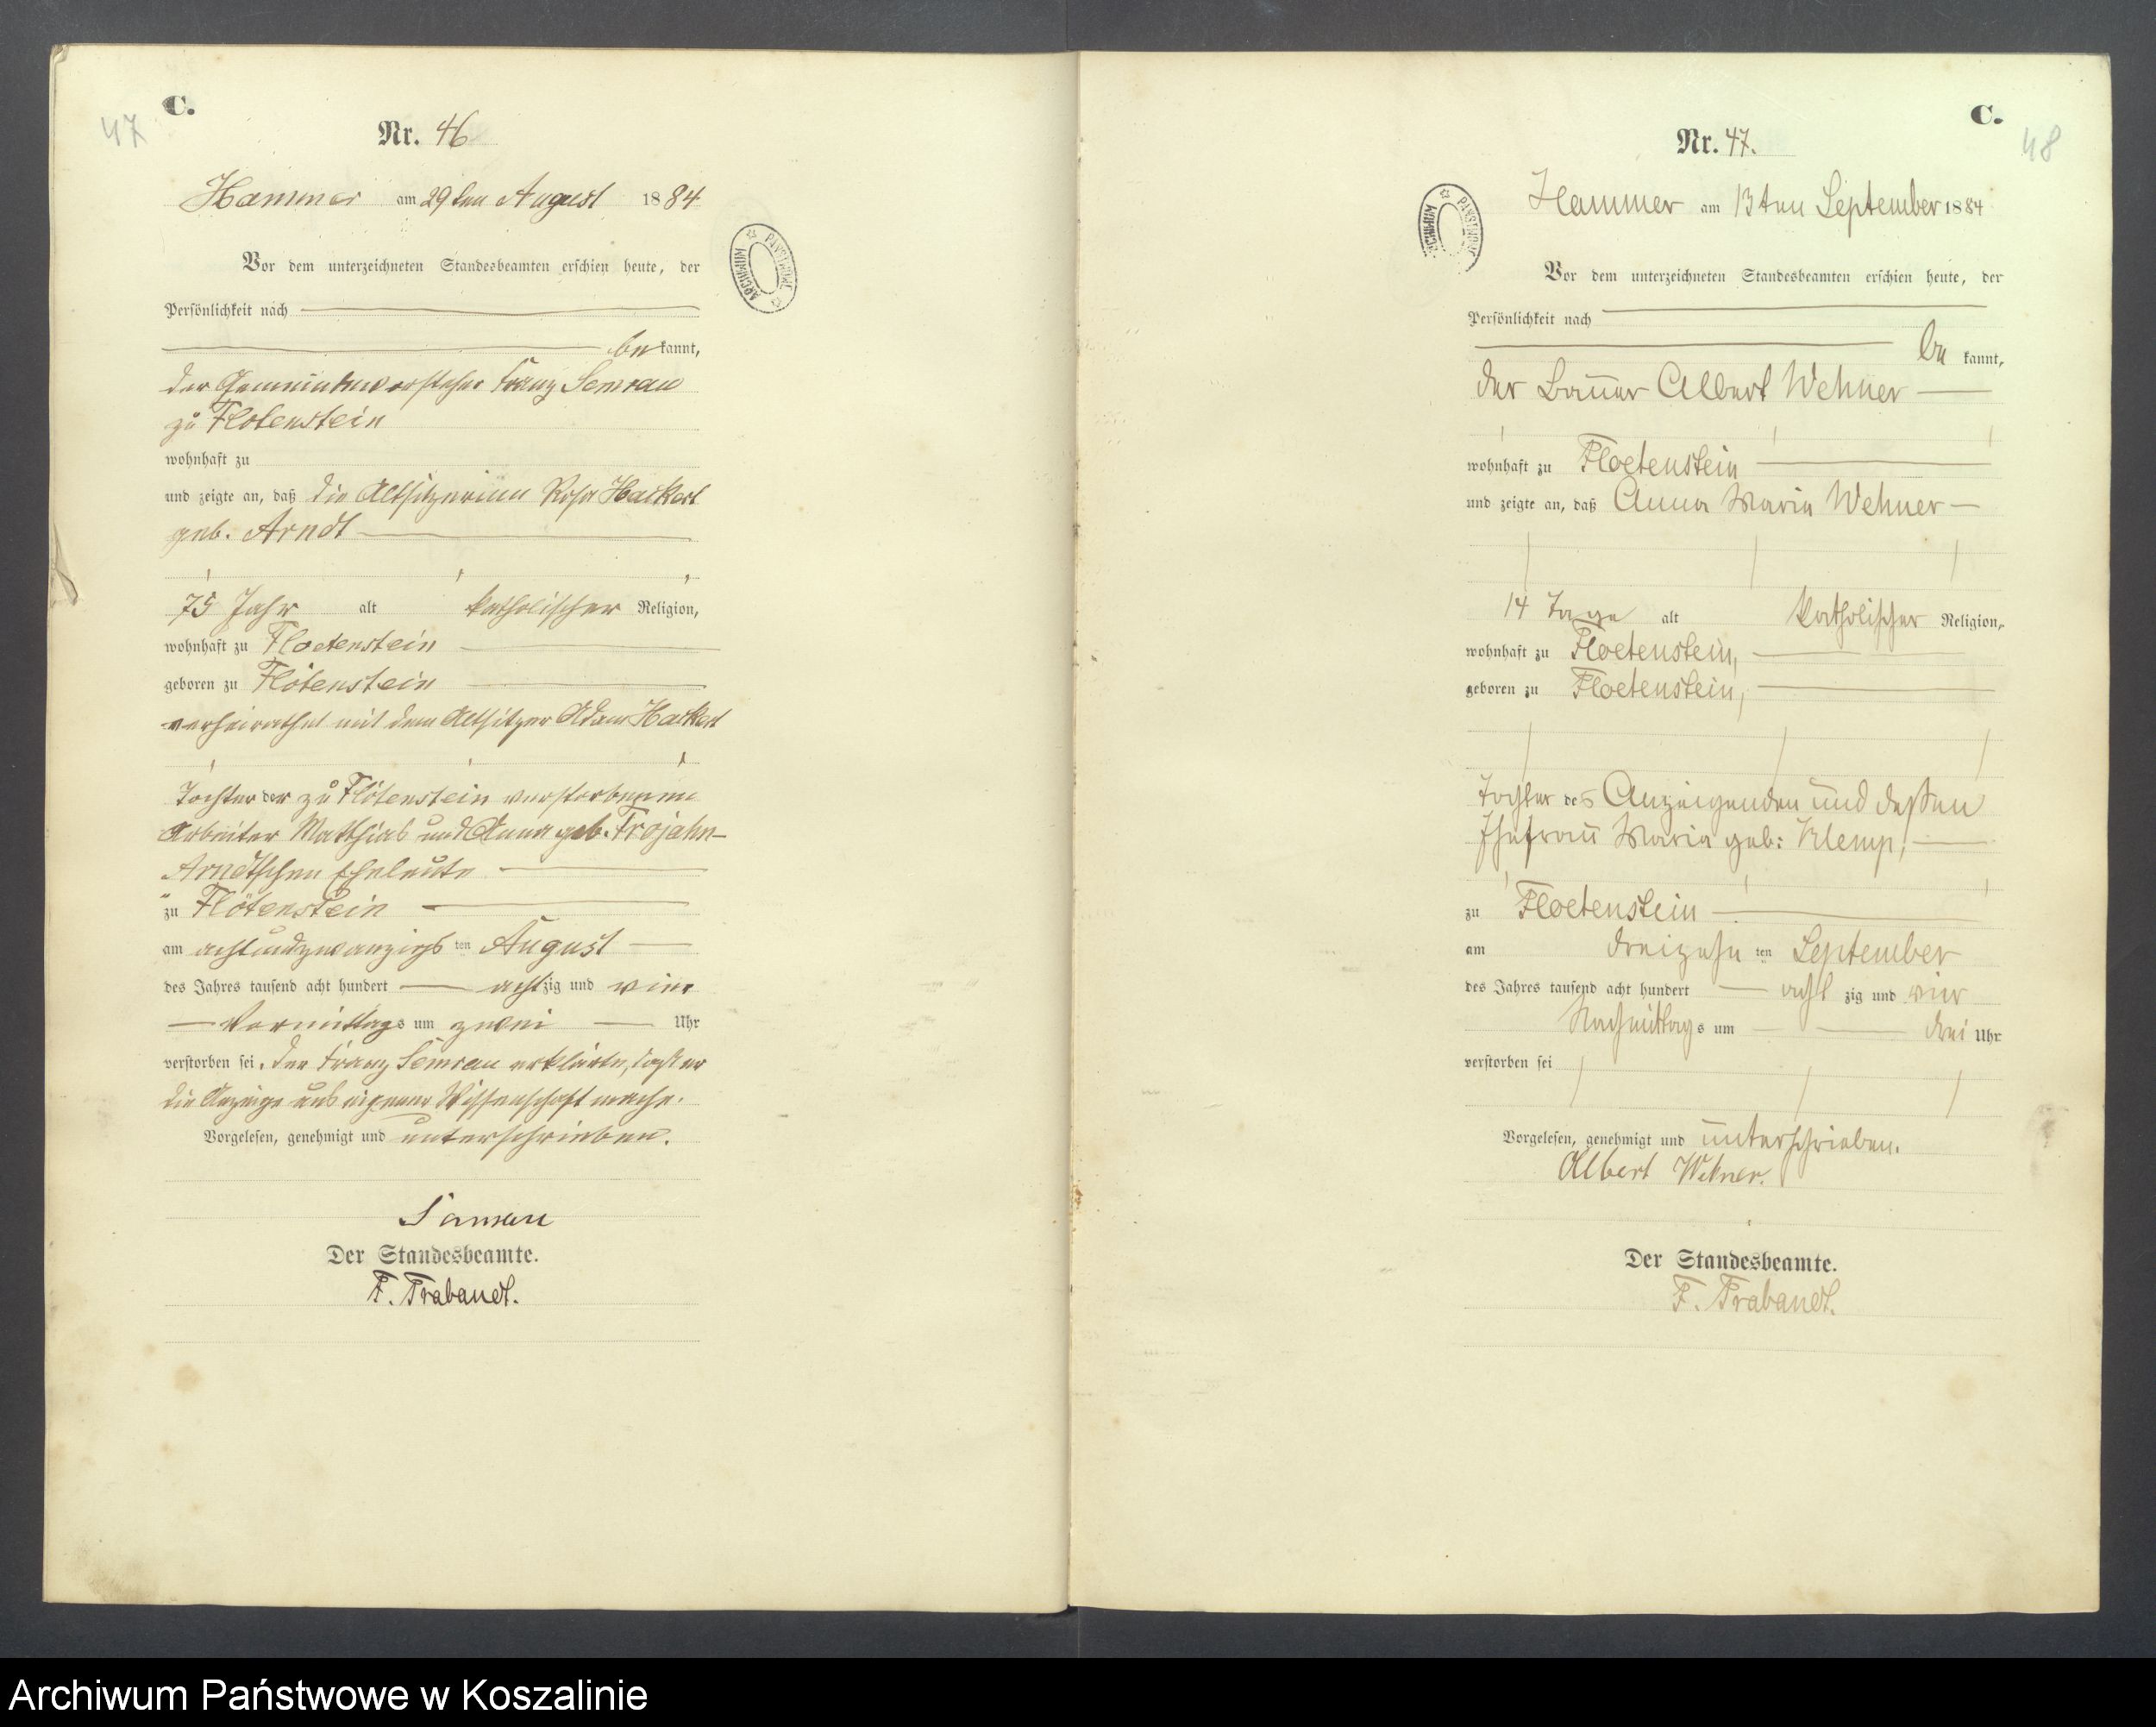 47
C.
Nr. 46
Hammer am 29ten August 1884
Vor dem unterzeichneten Standesbeamten erschien heute, der
Persönlichkeit nach
bekannt,
der Gemeindevorsteher Franz Semrau
zu Flötenstein
wohnhaft zu
und zeigte an, daß die Altsitzerinn Rosa Hackert
geb. Arndt
75 Jahr alt katholischer Religion,
wohnhaft zu Floetenstein
geboren zu Flötenstein
verheirathet mit dem Altsitzer Adam Hackert
Tochter der zu Flötenstein verstorbenen
Arbeiter Mathias und Anna geb. Trojahn-
Arndtschen Eheleute
zu Flötenstein
am achtundzwanzigsten August
des Jahres tausend acht hundert achtzig und vier
Vormittags um zwei Uhr
verstorben sei. Der Franz Semrau erklärte, daß er
die Anzeige aus eigener Wissenschaft mache.
Vorgelesen, genehmigt und unterschrieben.
Semrau
Der Standesbeamte.
F. Trabandt.
ARCHIWUM PAŃSTWOWE
C.
48
Nr. 47.
Hammer am 13ten September 1884
ARCHIWUM PAŃSTWOWE
Vor dem unterzeichneten Standesbeamten erschien heute, der
Persönlichkeit nach
bekannt,
der Bauer Albert Wehner
wohnhaft zu Floetenstein
und zeigte an, daß Anna Maria Wehner
14 Tage alt katholischer Religion,
wohnhaft zu Floetenstein,
geboren zu Floetenstein,
Tochter des Anzeigenden und dessen
Ehefrau Maria geb: Klemp,
zu Floetenstein
am dreizehnten September
des Jahres tausend acht hundert achtzig und vier
Nachmittags um drei Uhr
verstorben sei
Vorgelesen, genehmigt und unterschrieben.
Albert Wehner.
Der Standesbeamte.
F. Trabandt.
Archiwum Państwowe w Koszalinie